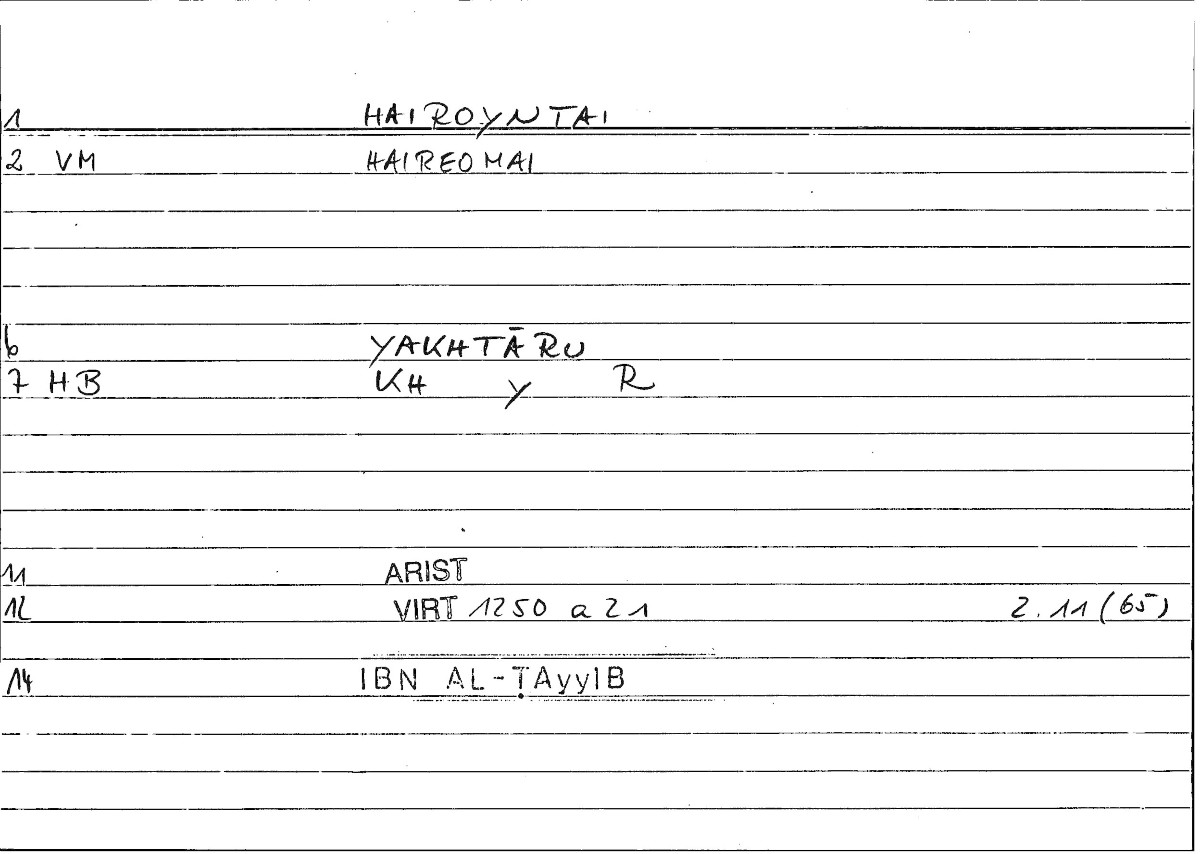 1 HAIROYNTAI
2 VM HAIREOMAI
6 YAKHTĀRU
7 HB KH Y R
11 ARIST
12 VIRT 1250 a 21 2.11 (65)
14 IBN AL-ṬAyyIB